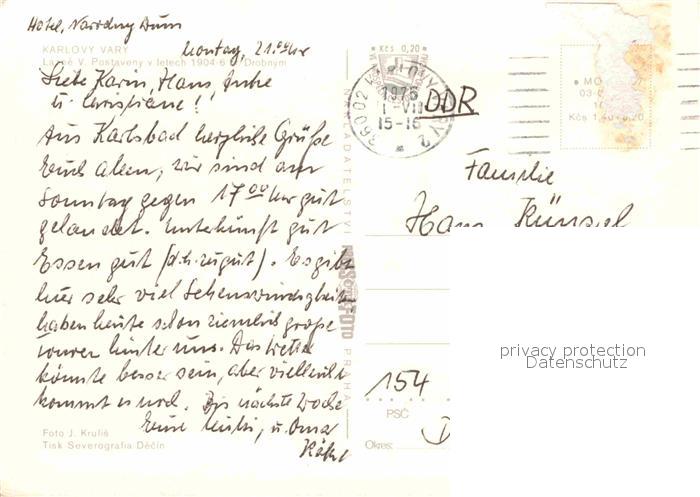 Hotel, Narodny Dum
KARLOVY VARY
Montag, 21.00 Uhr
Lázně V. Postaveny v letech 1904-6 Drobným
Liebe Karin, Hans, Antke
u. Christiane!
Aus Karlsbad herzliche Grüße
Euch allen, wir sind am
Sonntag gegen 17 00 Uhr gut
gelandet. Unterkunft gut
Essen gut (d.h. zugut). Es gibt
hier sehr viel Sehenswürdigkeiten
haben heute schon ziemlich große
Touren hinter uns. Das Wetter
könnte besser sein, aber vielleicht
kommt es noch. Bis nächste Woche
Eure u. Oma
Foto J. Kruliš
Tisk Severografia Děčín
NAKLADATELSTVÍ
FOTO
PRAHA
Kčs 0,20
36002 KARLOVY VARY 2
1976
1 VII
15-16
DDR
Kčs 1,40+0,20
Familie
Hans Künzel
privacy protection
Datenschutz
154
PSČ
Okres: